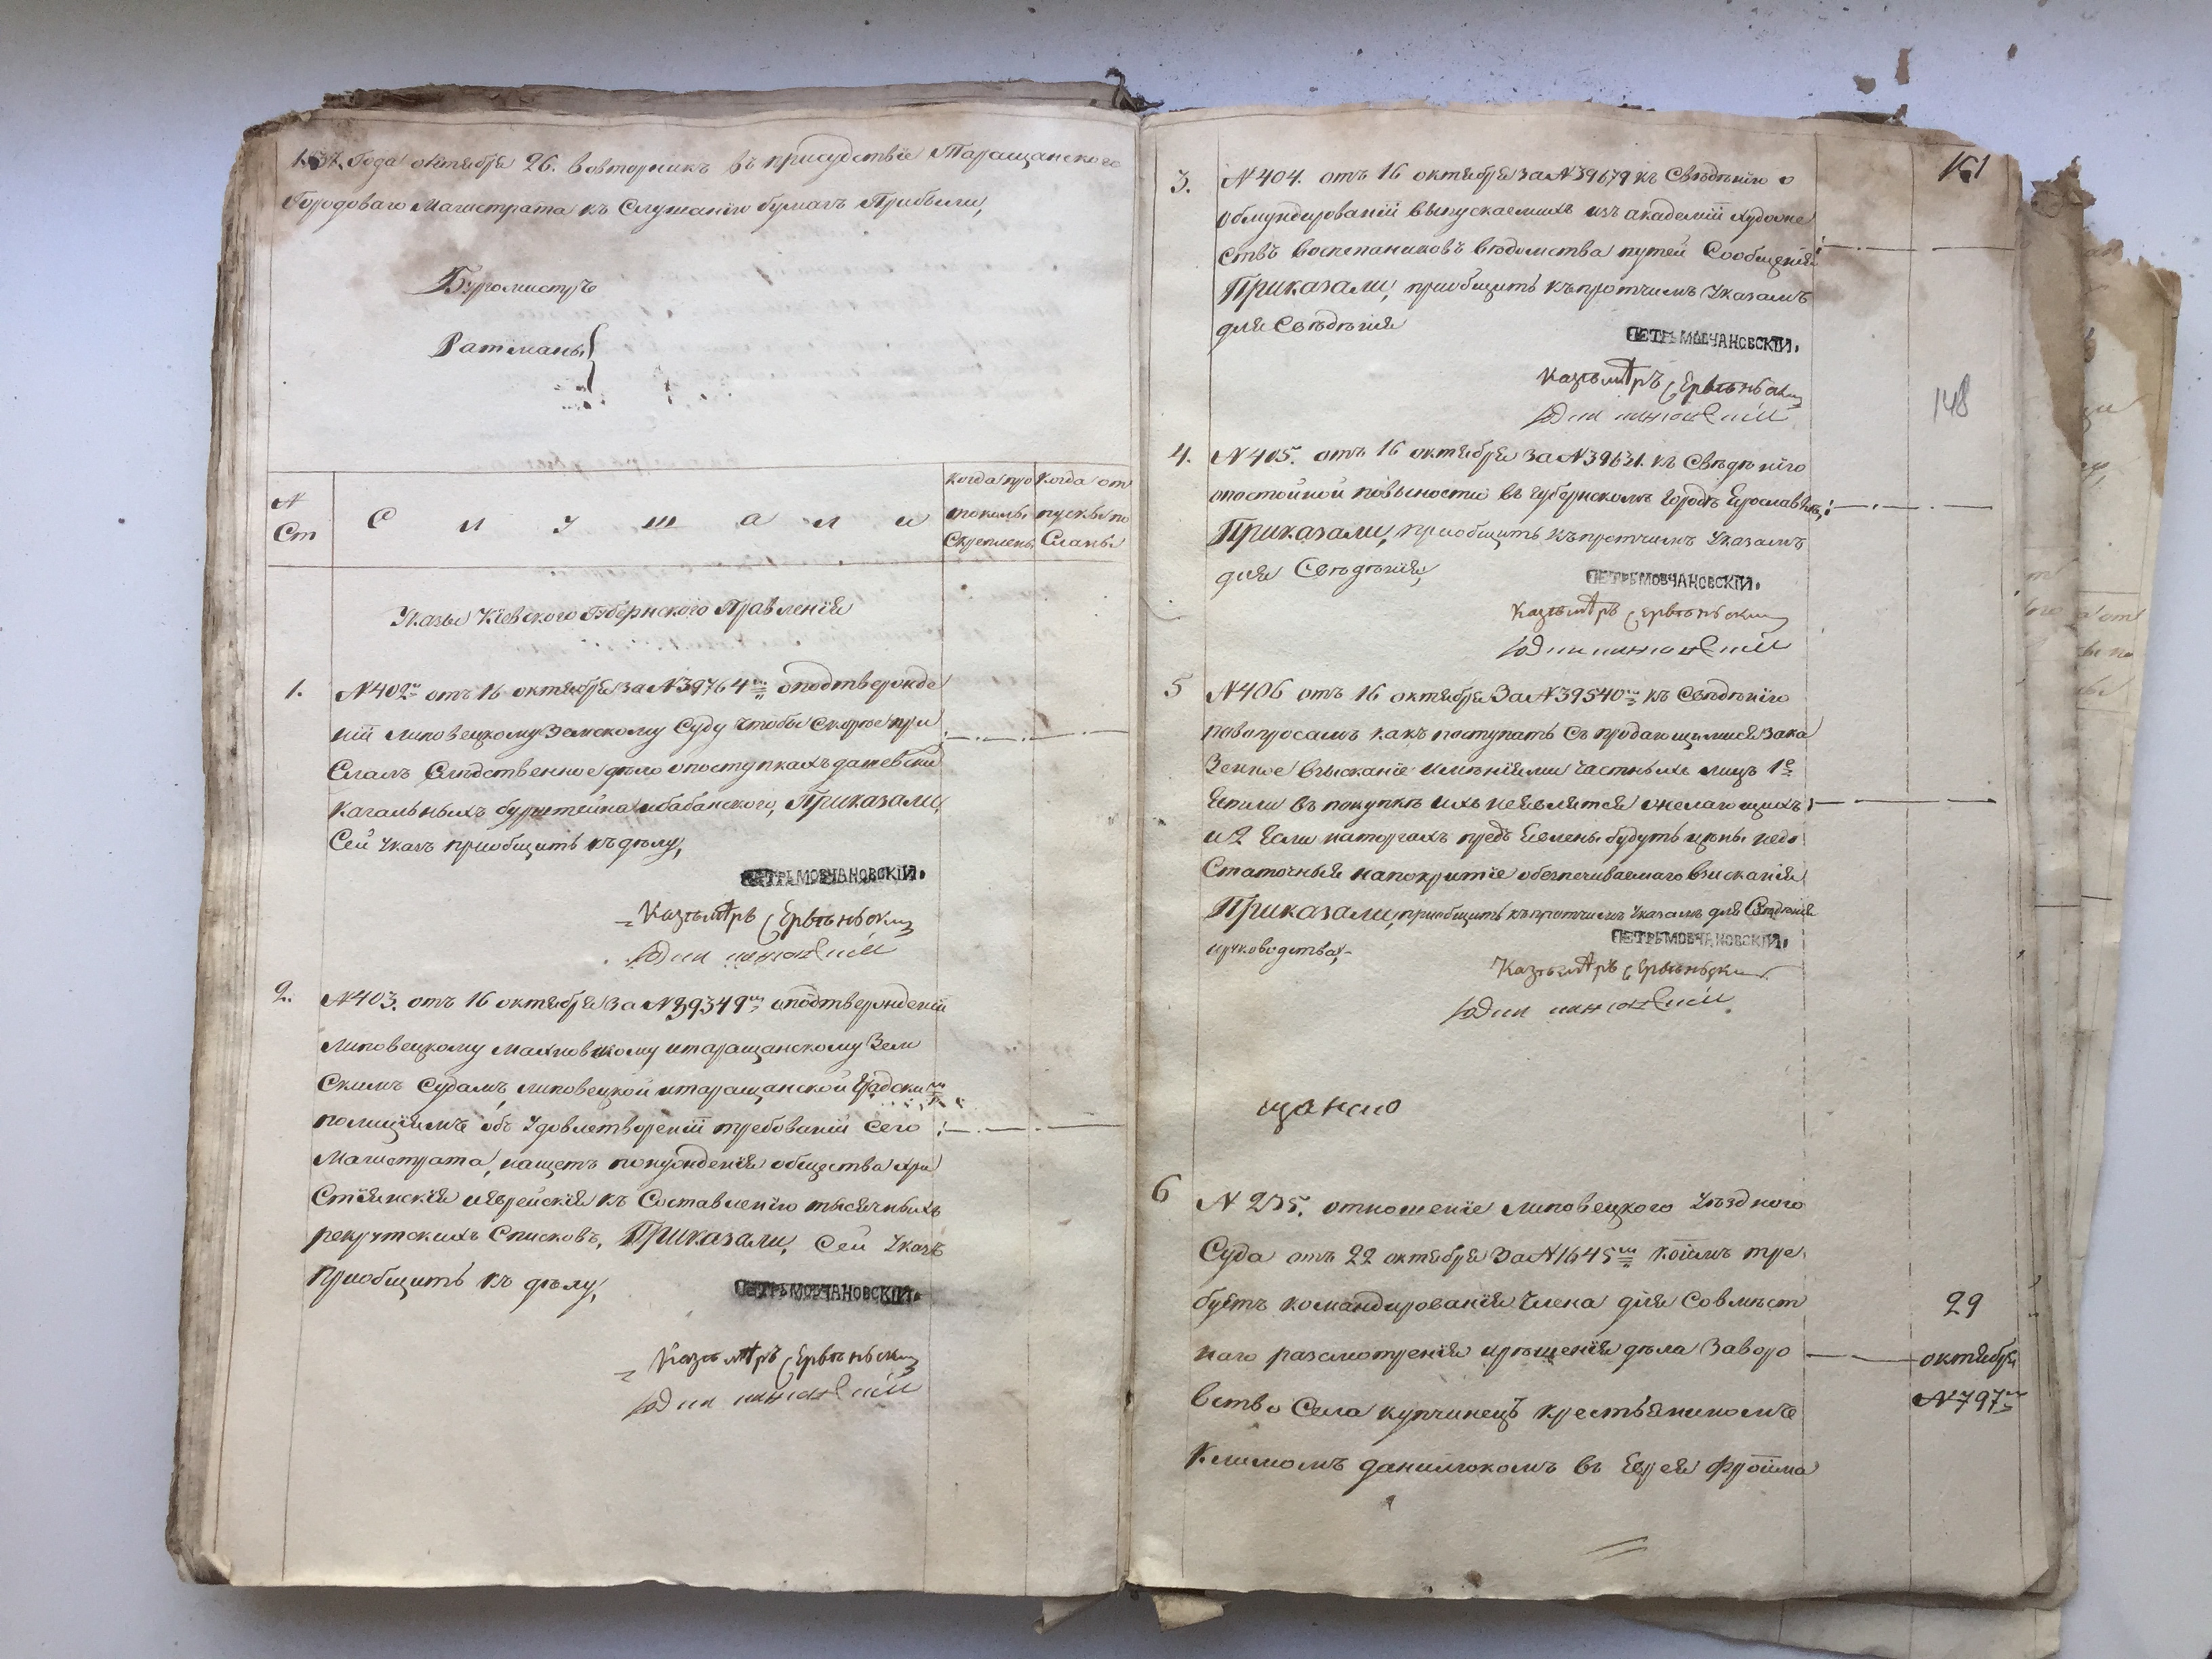 1837. Года октября 26. вовторникъ въ присудствіе Таращанского
Городоваго Магистрата къ Слушанію бумагъ Прибыли,
Бурмистръ
Ратманы
N
Ст
С л у ш а л и
Когда про
токолы
Скреплены
Когда от
пуски по
Сланы
Указы Кіевского Губернского Правленія
1. N 402й отъ 16 октября за N 39764м оподтвержде
ніи липовецкому Земскому Суду чтобы Скорѣе при
Слалъ Слѣдственное дѣло опоступкахъ дашевски
кагальныхъ бурштейна ибабанского, Приказали,
Сей Указъ приобщить къ дѣлу,
ПЕТРЪ МОВЧАНОВСКІЙ.
2. N 403. отъ 16 октября за N 39349м оподтвержденіи
липовецкому махновскому итаращанскому Зем
Скимъ Судамъ, липовецкой итаращанской Градским
полиціямъ объ Удовлетвореніи требованій Сего
Магистрата, нащетъ понужденія общества хри
Стіянскія иеврейскія къ Составленію тысячныхъ
рекрутскихъ Списковъ, Приказали, Сей Указъ
Приобщить къ дѣлу,
ПЕТРЪ МОВЧАНОВСКІЙ.
161
3. N 404. отъ 16 октября за N 39679 къ Свѣдѣнію о
обмундированіи выпускаемихъ изъ академіи художе
ствъ воспетаниковъ вѣдомства путей Сообщенія
Приказали, приобщить къпротчимъ Указамъ
для Свѣдѣнія
ПЕТРЪ МОВЧАНОВСКІЙ.
148
4. N 405. отъ 16 октября за N 39631. къ Свѣдѣнію
опостойной повыности въ губернскомъ городѣ Ярославлѣ,
Приказали, приобщить къпротчимъ Указамъ
для Свѣдѣнія,
ПЕТРЪ МОВЧАНОВСКІЙ.
5 N 406 отъ 16 октября За N 39540м къ Свѣдѣнію
повопросамъ какъ поступать Съ продающимися Зака
Зенное взысканіе имѣніями частныхъ лицъ 1е
Если въ покупкѣ ихъ неявлятся ожелающихъ
и 2 Если наторгахъ предъ Явлены будутъ цѣны недо
Статочныя напокритіе обезпечиваемаго взисканія
Приказали, приобщить къпротчимъ Указамъ для Свѣдѣнія
ируководства,-
ПЕТРЪ МОВЧАНОВСКІЙ.
6 N 275. отношеніе липовецкого Уѣздного
Суда отъ 22 октября За N 1645м коимъ тре
буетъ командированія Члена для Совмѣст
наго разсмотренія ирѣшенія дѣла Заворо
вство Села купчинецъ крестьяниномъ
Климомъ данилюкомъ въ Еврея Фроима
29
октября
N 797м